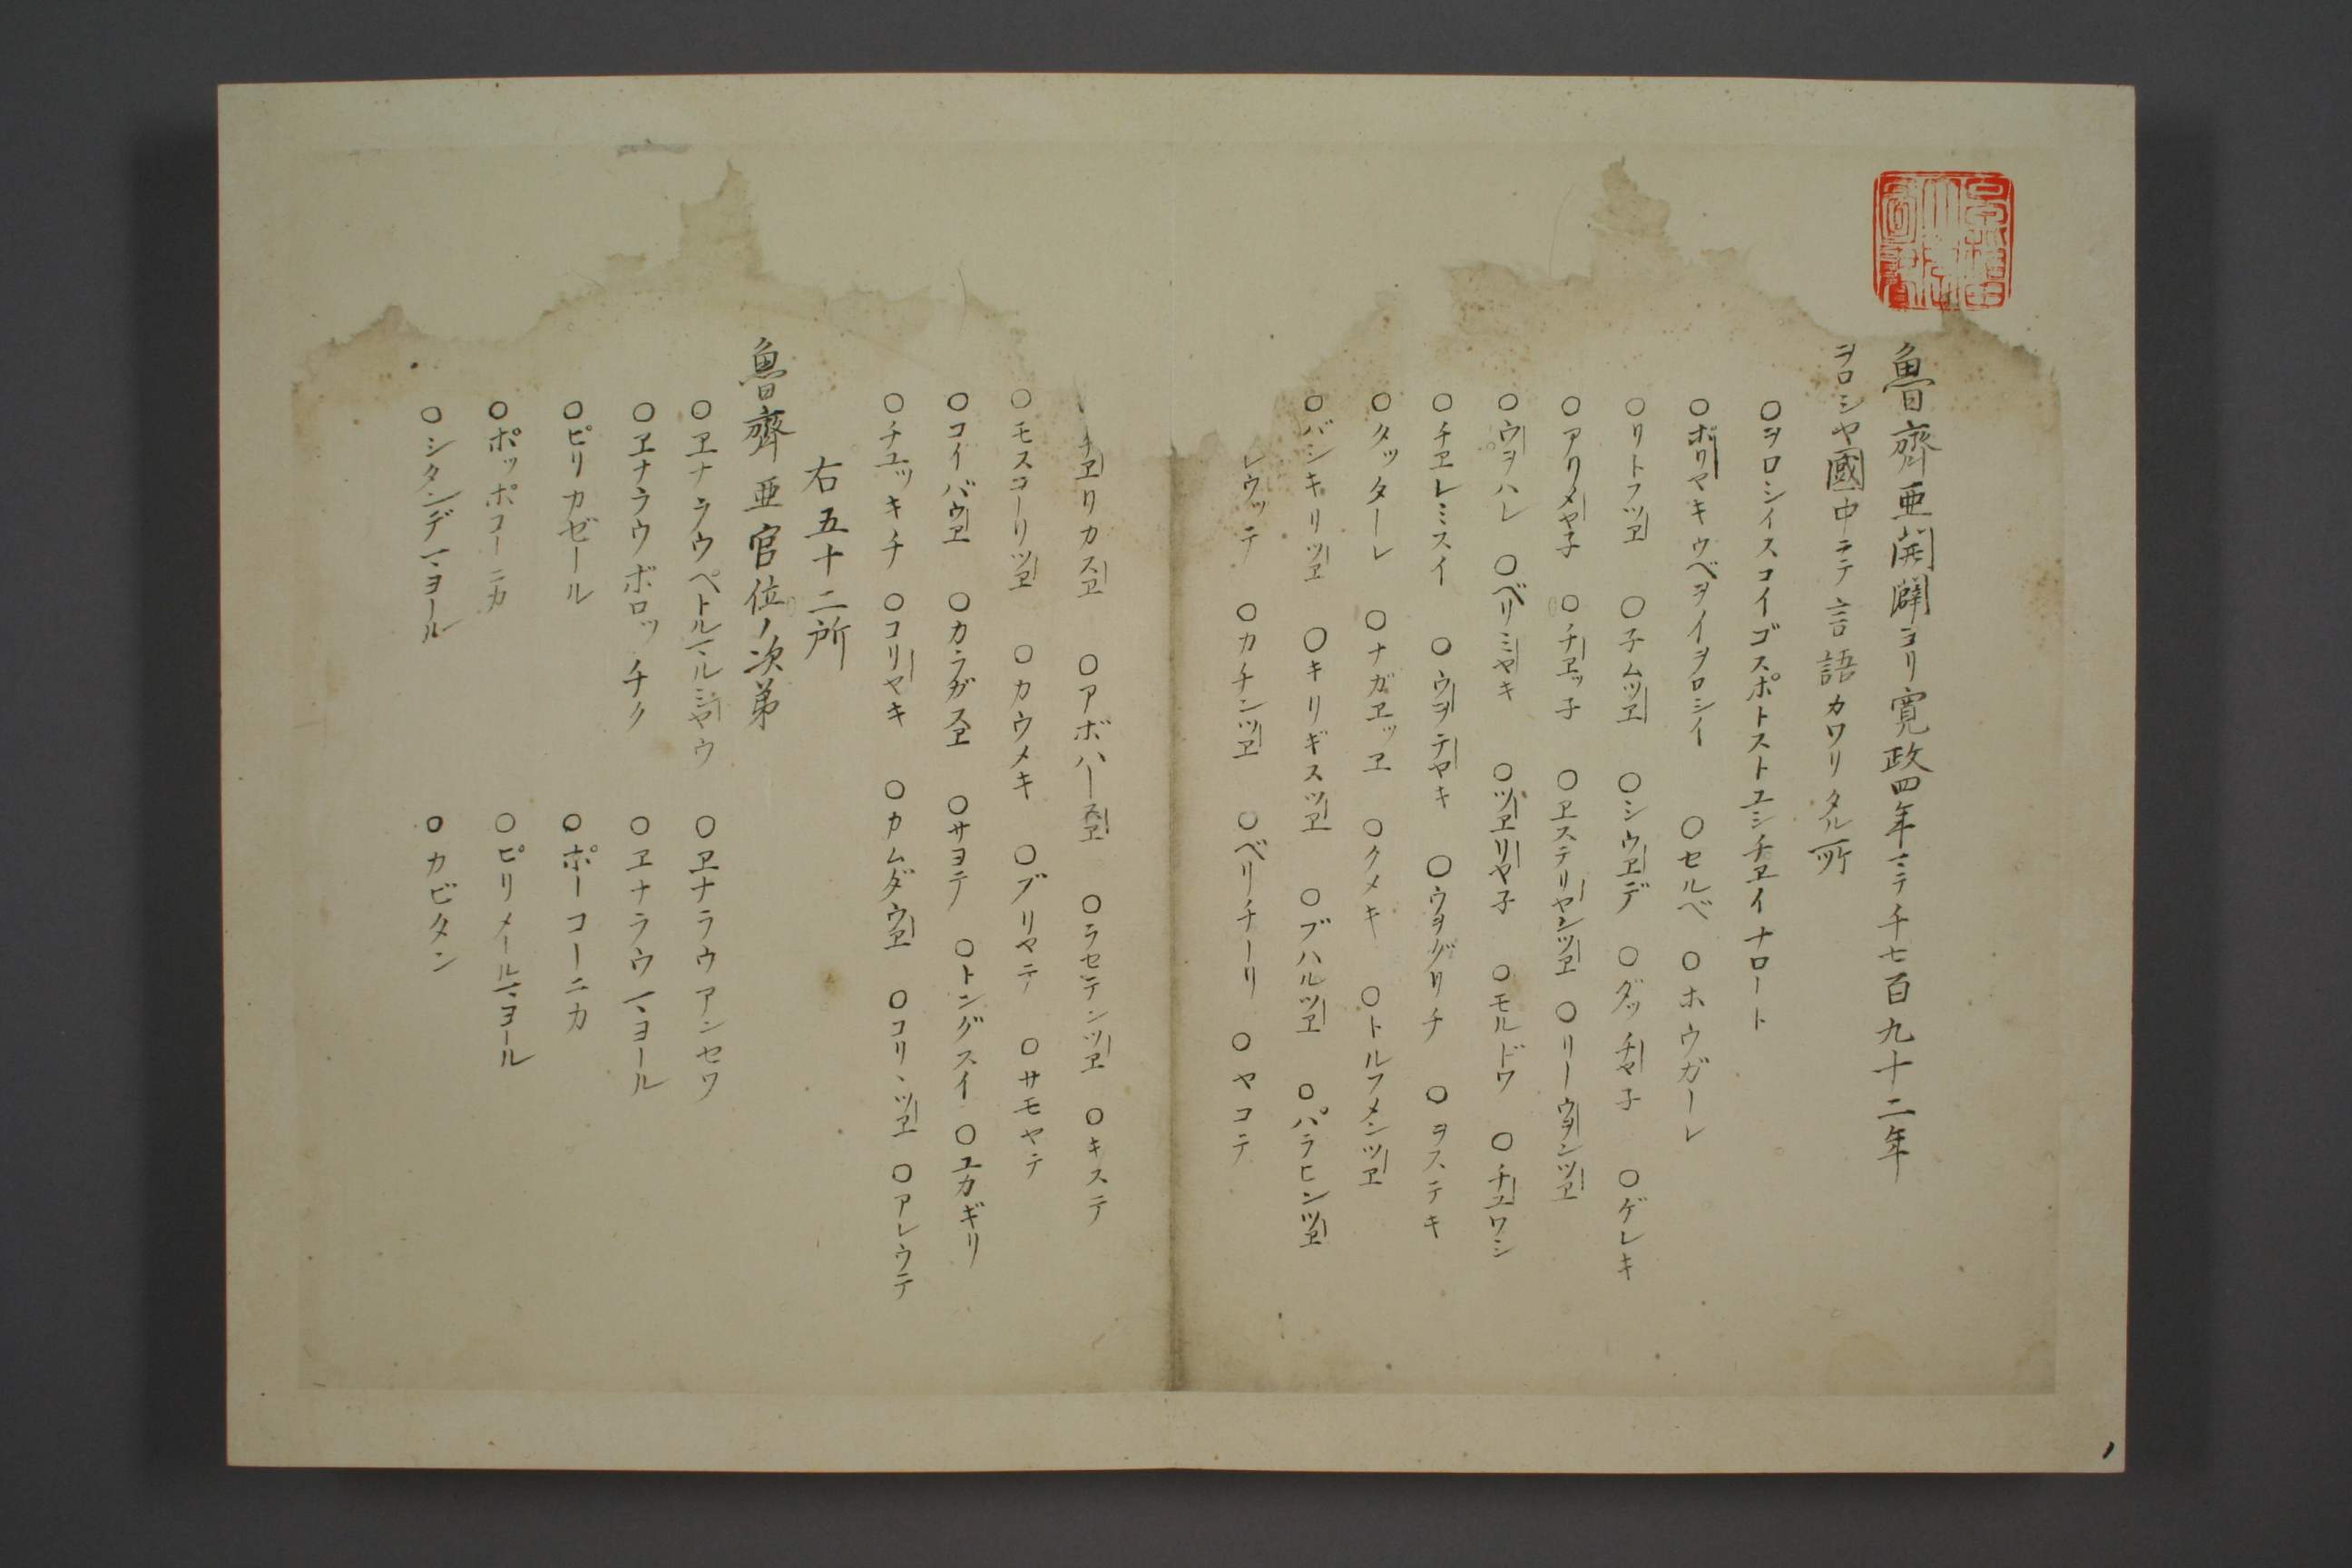 魯齊亜開闢ヨリ寛政四年ミテ千七百九十二年
ヲロシヤ國中ニテ言語カワリタル所
○ヲロシイスコイゴスポトストユシチヱイナロート
○ポリヤキウベヲイヲロシイ ○セルベ ○ホウガーレ
○リトフツヱ ○子ムツヱ ○シウヱデ ○ダッチヤ子 ○ゲレキ
○アリメヤ子 ○チヱッ子 ○ヱステリヤンツヱ ○リーウヲンツヱ
○ウヲハレ ○ベリミヤキ ○ツヱリヤ子 ○モルドワ ○チユワシ
○チヱレミスイ ○ウヲテヤキ ○ウヲグリチ ○ヲステキ
○タッターレ ○ナガヱッヱ ○クメキ ○トルフメンツヱ
○バシキリツヱ ○キリギスツヱ ○ブハルツヱ ○パラヒンツヱ
レウッテ ○カチンツヱ ○ベリチーリ ○ヤコテ
チヱリカスヱ ○アボハースヱ ○ラセテンツヱ ○キステ
○モスコーリツヱ ○カウメキ ○ブリヤテ ○サモヤテ
○コイバウヱ ○カラガスヱ ○サヨテ ○トングスイ ○ユカギリ
○チユッキチ ○コリヤキ ○カムダウヱ ○コリヽツヱ ○アレウテ
右五十二所
魯齊亜官位ノ次弟
○ヱナラウペトルマルミヤウ ○ヱナラウアンセワ
○ヱナラウボロッチク ○ヱナラウマヨール
○ピリカゼール ○ポーコーニカ
○ポッポコーニカ ○ピリメールマヨール
○シタンデマヨール ○カピタン